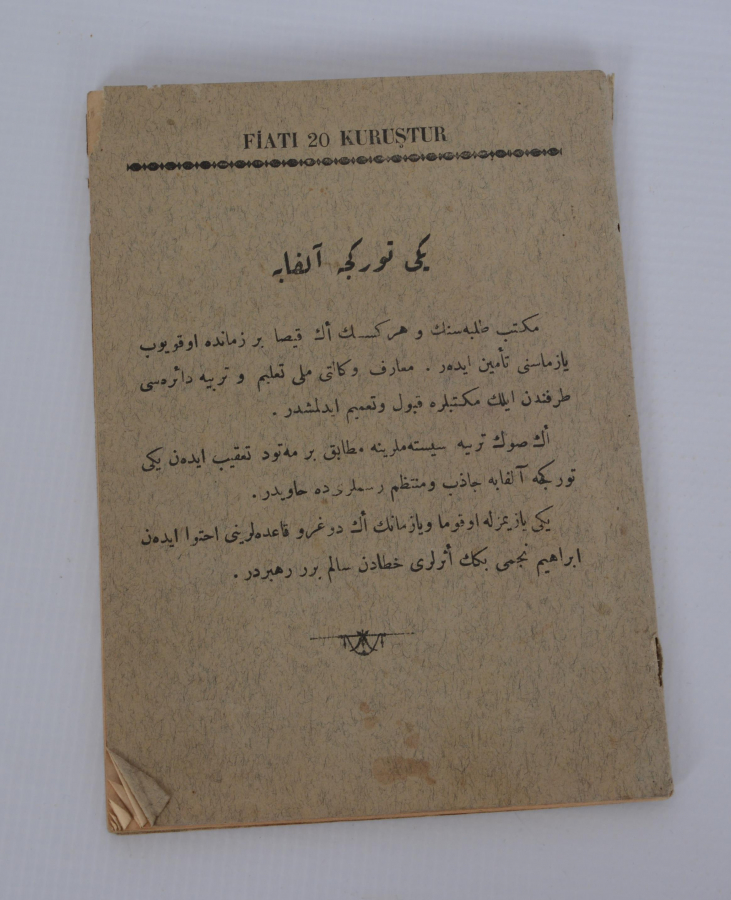 FİATI 20 KURUŞTUR
یكی تورکجه آلفابه
مكتب طلبه‌سنك و هركسك أك قیصا بر زمانده اوقویوب
یازماسنی تأمین ایده‌ر . معارف وكالتی ملی تعلیم و تربیه دائره‌سی
طرفندن ایلك مكتبلره قبول وتعمیم ایدلمشدر .
أك صوك تربیه سیسته‌ملرینه مطابق بر مه‌تود تعقیب ایده‌ن یكی
تورکجه آلفابه جاذب ومنتظم رسملری‌ده حاویدر .
یكی یازیمزله اوقوما ویازمانك أك دوغرو قاعده‌لرینی احتوا ایده‌ن
ابراهیم نجمی بكك أثرلری خطادن سالم برر رهبردر .